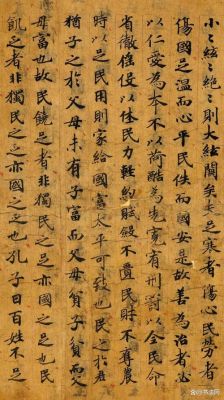 小々絃絕々則大絃闋矣夫足寒者傷心民勞者
傷國足溫而心平民佚而國安是故善為治者必
以仁愛為本不以苛酷為先寬宥刑罰以全民命
省徹徭役以休民力輕約賦斂不匱民財不奪農
時以足民用則家給國富太平可致也民之於君
猶子之於父母未有子富而父母貧子貧而父
母富也故民饒足者非獨民之足亦國之足也民
飢乏者非獨民之乏亦國之乏也孔子曰百姓不足